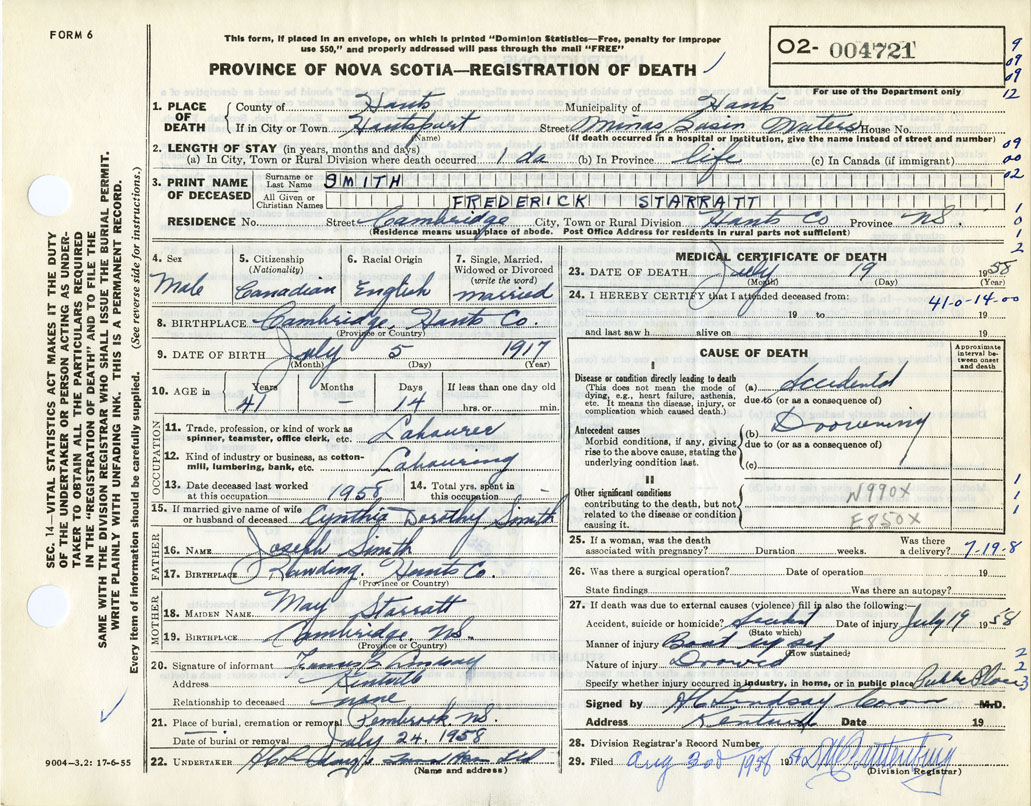 FORM 6
This form, if placed in an envelope, on which is printed "Dominion Statistics—Free, penalty for improper
use $50," and properly addressed will pass through the mail "FREE"
PROVINCE OF NOVA SCOTIA—REGISTRATION OF DEATH
O2- 004721
For use of the Department only
9
09
09
12
1. PLACE OF DEATH
County of Hants Municipality of Hants
If in City or Town Hantsport Street Minas Basin Waters House No.
(Name) (If death occurred in a hospital or institution, give the name instead of street and number)
2. LENGTH OF STAY (in years, months and days)
(a) In City, Town or Rural Division where death occurred 1 da (b) In Province life (c) In Canada (if immigrant)
09
00
02
3. PRINT NAME OF DECEASED
Surname or Last Name SMITH
All Given or Christian Names FREDERICK STARRATT
RESIDENCE No. Street Cambridge City, Town or Rural Division Hants Co Province N.S.
(Residence means usual place of abode. Post Office Address for residents in rural parts not sufficient)
1
0
1
2
4. Sex Male
5. Citizenship (Nationality) Canadian
6. Racial Origin English
7. Single, Married, Widowed or Divorced (write the word) married
8. BIRTHPLACE Cambridge, Hants Co.
(Province or Country)
9. DATE OF BIRTH July 5 1917
(Month) (Day) (Year)
10. AGE in Years 41 Months – Days 14 If less than one day old hrs. or min.
OCCUPATION
11. Trade, profession or kind of work as spinner, teamster, office clerk, etc. Labourer
12. Kind of industry or business, as cotton-mill, lumbering, bank, etc. Labouring
13. Date deceased last worked at this occupation 1958
14. Total yrs. spent in this occupation
15. If married give name of wife or husband of deceased Cynthia Dorothy Smith
FATHER
16. NAME Joseph Smith
17. BIRTHPLACE Hants Co.
(Province or Country)
MOTHER
18. MAIDEN NAME May Starratt
19. BIRTHPLACE Cambridge, N.S.
(Province or Country)
20. Signature of informant Lindsay
Address Kentville
Relationship to deceased none
21. Place of burial, cremation or removal Pembrook, N.S.
Date of burial or removal July 24, 1958
22. UNDERTAKER Ltd
(Name and address)
MEDICAL CERTIFICATE OF DEATH
23. DATE OF DEATH July 19 1958
(Month) (Day) (Year)
24. I HEREBY CERTIFY that I attended deceased from:
41-0-14-00
19 to 19
and last saw h alive on 19
CAUSE OF DEATH
Approximate interval between onset and death
I
Disease or condition directly leading to death
(This does not mean the mode of dying, e.g., heart failure, asthenia, etc. It means the disease, injury, or complication which caused death.)
(a) Accidental
due to (or as a consequence of)
Antecedent causes
Morbid conditions, if any, giving rise to the above cause, stating the underlying condition last.
(b) Drowning
due to (or as a consequence of)
(c)
II
Other significant conditions contributing to the death, but not related to the disease or condition causing it.
N990X
E850X
1
1
1
25. If a woman, was the death associated with pregnancy? Duration weeks. Was there a delivery? 7-19-8
26. Was there a surgical operation? Date of operation 19
State findings Was there an autopsy?
27. If death was due to external causes (violence) fill in also the following:
Accident, suicide or homicide? Accident Date of injury July 19 1958
(State which)
Manner of injury Boat up set
(How sustained)
Nature of injury Drowed
Specify whether injury occurred in industry, in home, or in public place Public Place
2
2
3
Signed by Lindsay M.D.
Address Kentville Date 19
28. Division Registrar's Record Number
29. Filed Aug 1958 19
(Division Registrar)
9004—3.2: 17-6-55
SEC. 14—VITAL STATISTICS ACT MAKES IT THE DUTY
OF THE UNDERTAKER OR PERSON ACTING AS UNDER-
TAKER TO OBTAIN ALL THE PARTICULARS REQUIRED
IN THE "REGISTRATION OF DEATH" AND TO FILE THE
SAME WITH THE DIVISION REGISTRAR WHO SHALL ISSUE THE BURIAL PERMIT.
WRITE PLAINLY WITH UNFADING INK. THIS IS A PERMANENT RECORD.
Every item of information should be carefully supplied. (See reverse side for instructions.)